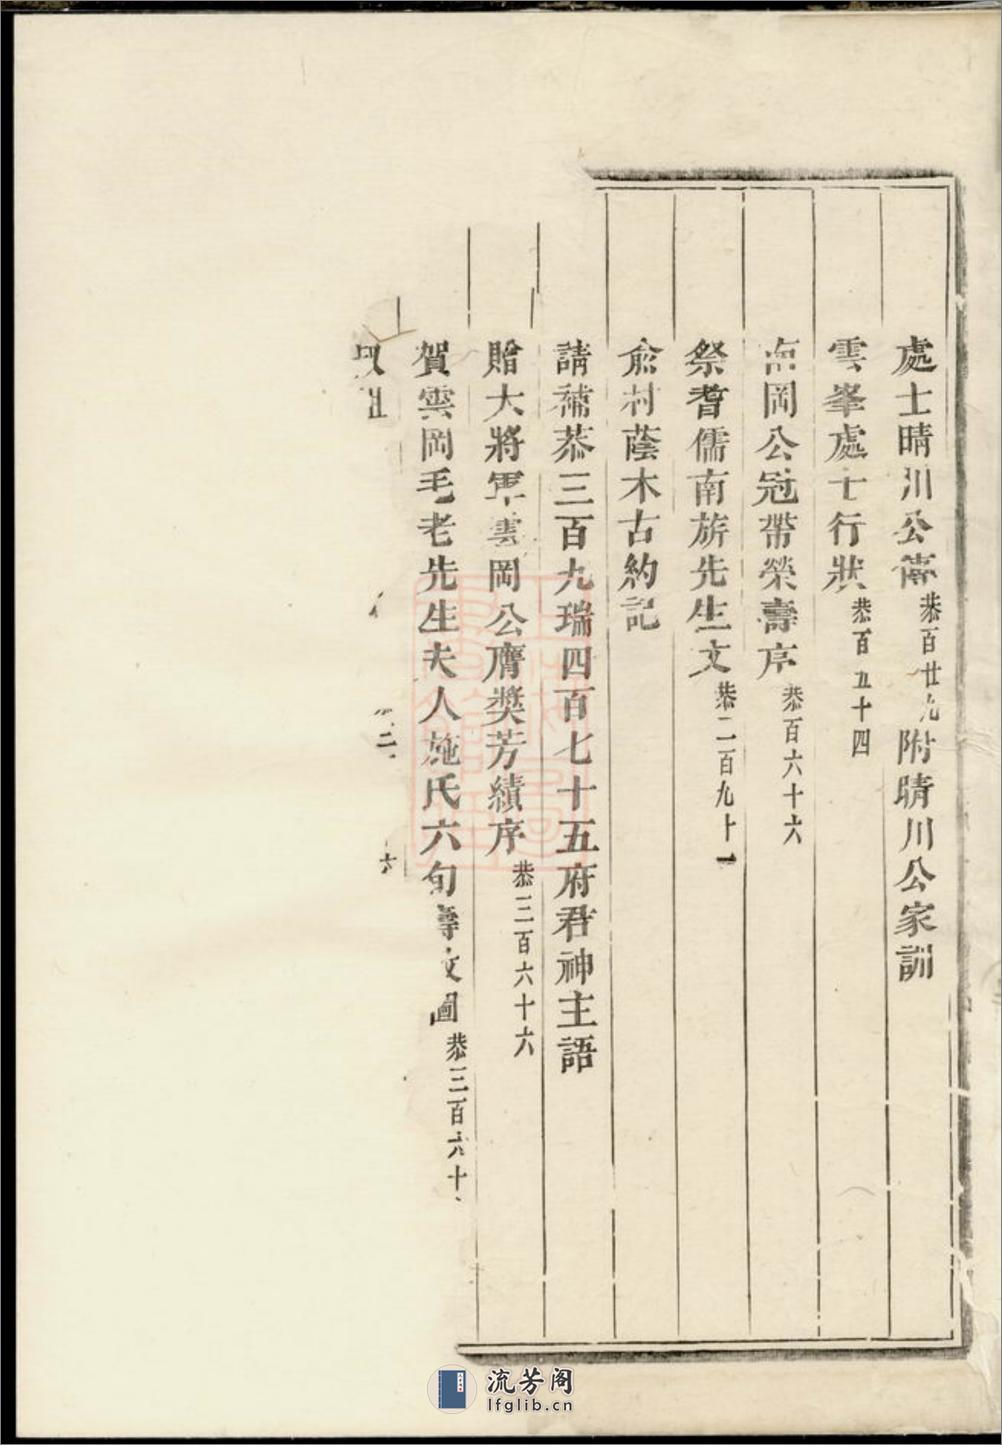 處士晴川公傳恭百廿九附晴川公家訓
雲峯處士行狀恭百五十四
南岡公冠帶榮壽序恭百六十六
祭耆儒南旂先生文恭二百九十一
俞村蔭木古約記
請補恭三百九瑞四百七十五府君神主語
贈大將軍雲岡公膺獎芳績序恭三百六十六
賀雲岡毛老先生夫人施氏六旬壽文圖恭三百六十
二
六
流芳阁
lfglib.cn